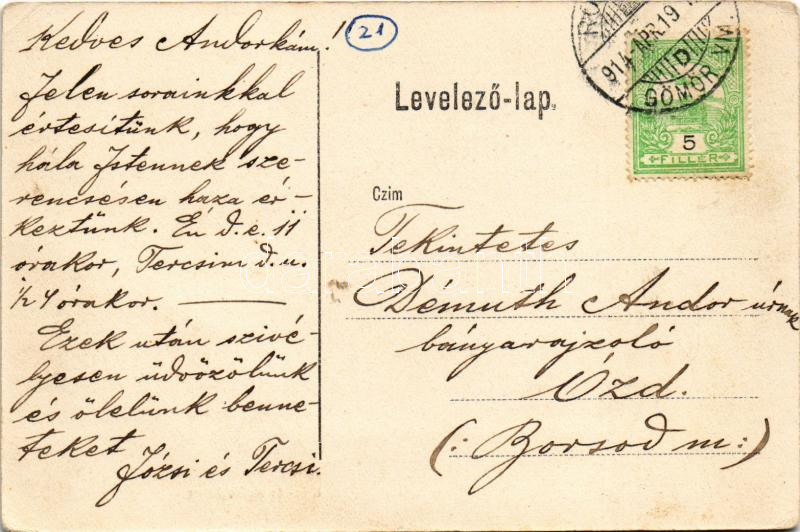 Kedves Andorkám!
Jelen sorainkkal
értesítünk, hogy
hála Istennek sze-
rencsésen haza ér-
keztünk. Én d. e. 11
órakor, Tercsim d. u.
1/2 4 órakor. ———
Ezek után szivé-
lyesen üdvözölünk
és ölelünk benne-
teket
Józsi és Tercsi.
21
Levelező-lap.
914 APR 19
D
GÖMÖR VM
5
FILLÉR
Czim
Tekintetes
Démuth Andor úrnak
bányarajzoló
Ózd.
(: Borsod m :)